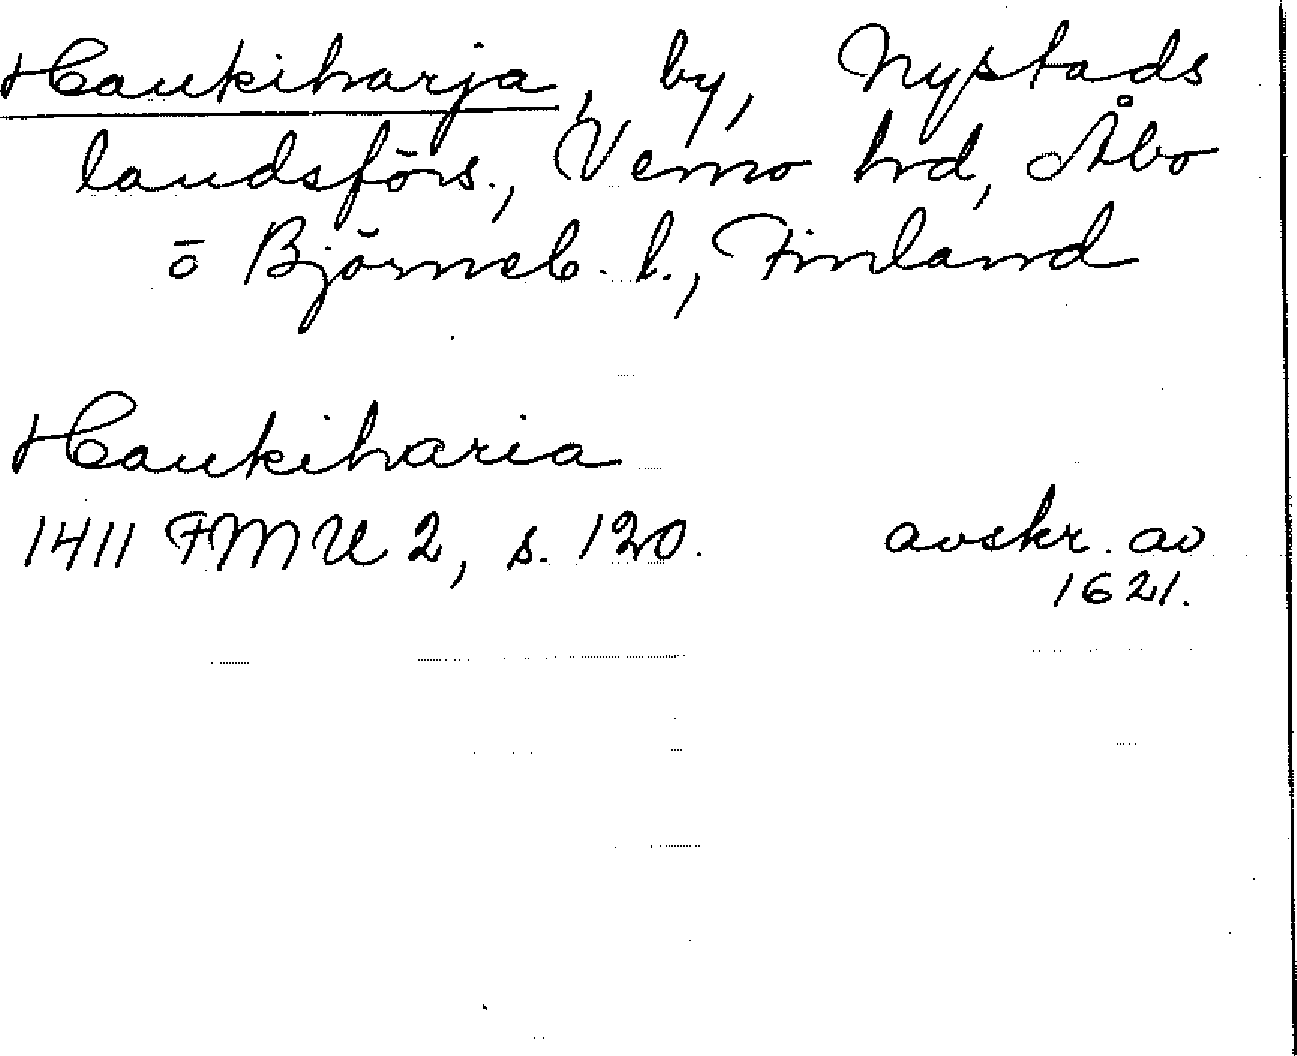 Haukiharja, by, Nystads
landsförs., Vemo hrd, Åbo
o Björneb. l., Finland
Haukiharia
1411 FMU 2, s. 120. avskr. av
1621.